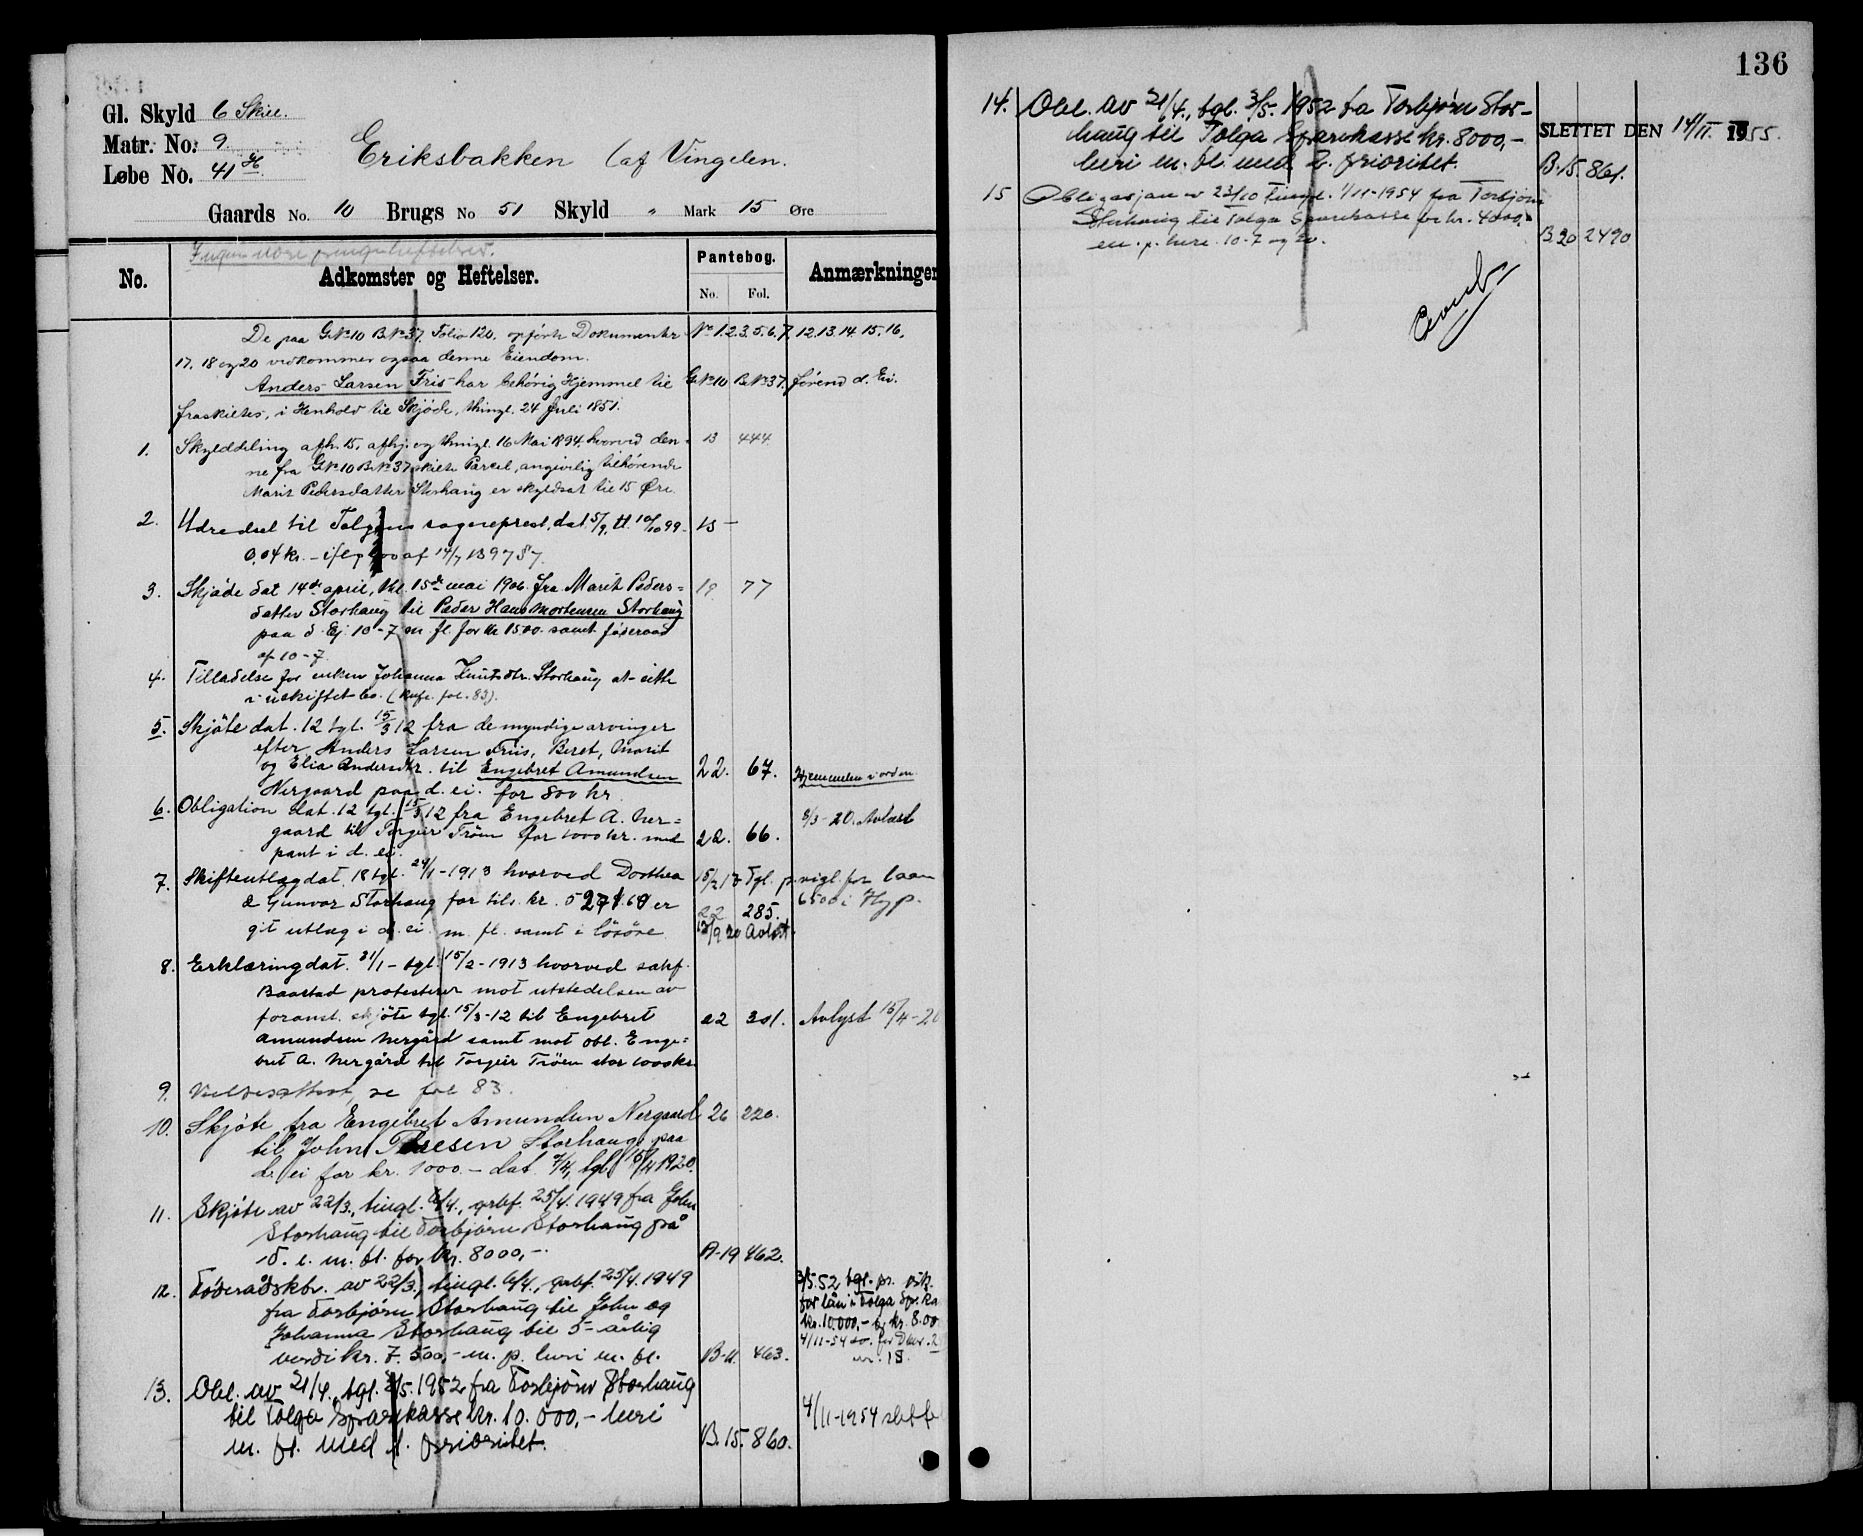 Gl. Skyld 6 Skill.
Matr. No. 9
Løbe No. 41 H
Eriksbakken (af Vingelen.
Gaards No. 10 Brugs No 51 Skyld " Mark 15 Øre
No.
Adkomster og Heftelser.
Pantebog.
No. Fol.
Anmærkninger
De paa G.No 10 B.No 37, Folio 120, opførte Dokumenter No 1.2.3.5.6.7.12.13.14.15.16.
17, 18 og 20 vedkommer ogsaa denne Eiendom.
Anders Larsen Friis har behørig Hjemmel til G.No 10 B.No 37, førend d. Ei.
fraskiltes, i Henhold til Skjøde, thingl. 24 Juli 1851.
1. Skylddeling afh. 15, afhj. og thingl. 16 Mai 1894, hvorved den- 13 444
ne fra G.No 10 B.No 37 skilte Parcel, angivelig tilhørende
Marit Pedersdatter Storhaug er skyldsat til 15 Øre.
2. Udredsel til Tolgens sogneprest, dat. 5/9, tl. 10/10 99 - 15 -
0,04 kr. - iflg lov af 14/7 1897 § 7.
3. Skjøde dat 14de april, thl. 15de mai 1906 fra Marit Peders= 19 77
datter Storhaug til Peder Hans Mortensen Storhaug
paa d. Ej. 10-7 m. fl. for kr 1500. samt føderaad
af 10-7
4. Tilladelse for enken Johanna Knutsdtr. Storhaug at sitte
i uskiftet bo. (Knfr. fol. 83).
5. Skjøte dat. 12 tgl. 15/3 12 fra de myndige arvinger
efter Anders Larsen Friis, Beret, Marit
og Elia Andersdtr. til Engebret Amundsen 22. 67. Hjemmelen i orden
Nergaard paa d. ei. for 800 kr.
6. Obligation dat. 12 tgl. 15/3 12 fra Engebret A. Ner= 8/3-20. Avlæst
gaard til Torgeir Trøen for 1000 kr. med 22. 66.
pant i d. ei.
7. Skifteutlæg dat. 18 tgl. 24/1-1913 hvorved Dorthea 15/2 17 Tgl. p. vigl. for laan
& Gunvor Storhaug for tils. kr. 5271.69 er 22 285. 6500 i Hyp.
git utlæg i d. ei. m. fl. samt i løsøre. 13/9 20 Avlæst.
8. Erklæring dat. 31/1 - tgl. 15/2-1913 hvorved sakf.
Baastad protesterer mot utstedelsen av
foranst. skjøte tgl. 15/3-12 til Engebret 22 301. Avlyst 15/4-20
Amundsen Nergård samt mot obl. Enge=
bret A. Nergård til Torgeir Trøen stor 1000 kr.
9. Vielsesattest, se fol 83.
10. Skjøte fra Engebret Amundsen Nergaard 26 220.
til John Thoresen Storhaug paa
d. ei for kr. 1000.- dat. 7/4, tgl 15/4 1920.
11. Skjøte av 22/3, tingl. 6/4, grbf. 25/4. 1949 fra John
Storhaug til Torbjørn Storhaug på
d. e. m. fl. for kr. 8000,-. A-19 462.
12. Føderådskbr. av 22/3, tingl. 6/4, grbf. 25/4. 1949
fra Torbjørn Storhaug til John og
Johanna Storhaug til 5-årlig
verdi kr. 7.500,- m. p. heri m. fl. B-11. 463.
3/5.52 tgl. pr. vik.
for lån i Tolga Spr.ka
kr. 10.000,- & kr. 8.00
4/11-54 do. for Dbnr. 2
nr. 15.
13. Obl. av 21/4, tgl. 3/5. 1952 fra Torbjørn Storhaug
til Tolga Sparekasse kr. 10.000,- heri 4/11-1954 slettet
m. fl. med 1. prioritet. B.15. 860.
136
14. Obl. av 21/4., tgl. 3/5. 1952 fra Torbjørn Stor-
haug til Tolga Sparekasse kr. 8000,- SLETTET DEN 14/11 1955.
heri m. fl. med 2. prioritet. B.15. 861.
15 Obligasjon av 23/10 Tingl. 1/11-1954 fra Torbjørn
Storhaug til Tolga Sparekasse for kr. 4000,-
m. p. heri 10-7 og B.20 2490